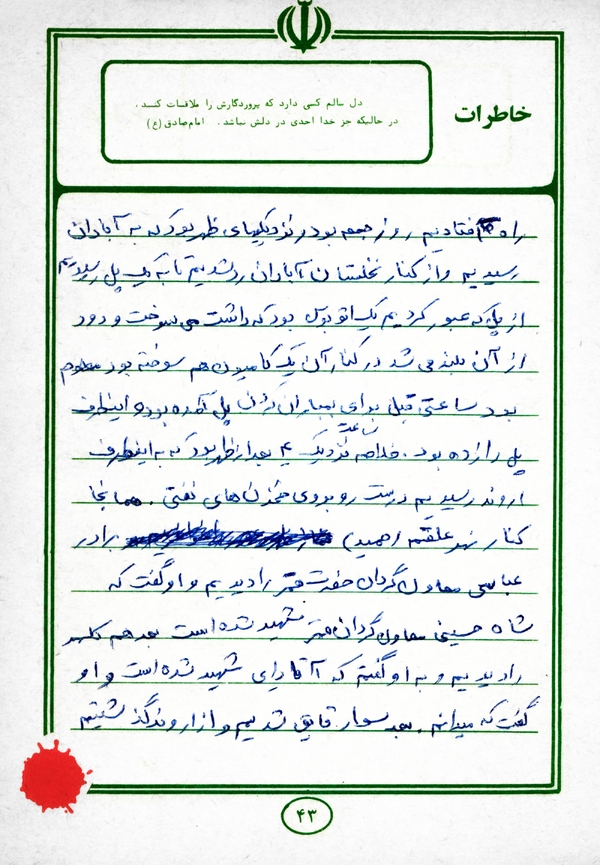 خاطرات
دل سالم کسی دارد که پروردگارش را ملاقات کند ،
در حالیکه جز خدا احدی در دلش نباشد . امام صادق (ع)
راه افتادیم روز جمعه بود در نزدیکیهای ظهر بود که به آبادان
رسیدیم و از کنار نخلستان آبادان رد شدیم تا به یک پل رسیدیم
از پل که عبور کردیم یک اتوبوس بود که داشت می سوخت و دود
از آن بلند می شد در کنار آن یک کامیون هم سوخته بود معلوم
بود ساعتی قبل برای بمباران کردن پل آمده بوده اینطرف
پل را زده بود . خلاصه نزدیک ساعت ۴ بعد از ظهر بود که به اینطرف
اروند رسیدیم درست روبروی مخزن های نفتی . همانجا
کنار نهر علقمه برادر
عباسی معاون گردان حضرت قمر را دیدیم و او گفت که
شاه حسینی معاون گردان قمر شهید شده است بعد هم
را دیدیم و به او گفتم که آقا شهید شده است و او
گفت که میدانم . بعد سوار قایق شدیم و از اروند گذشتیم
۴۳